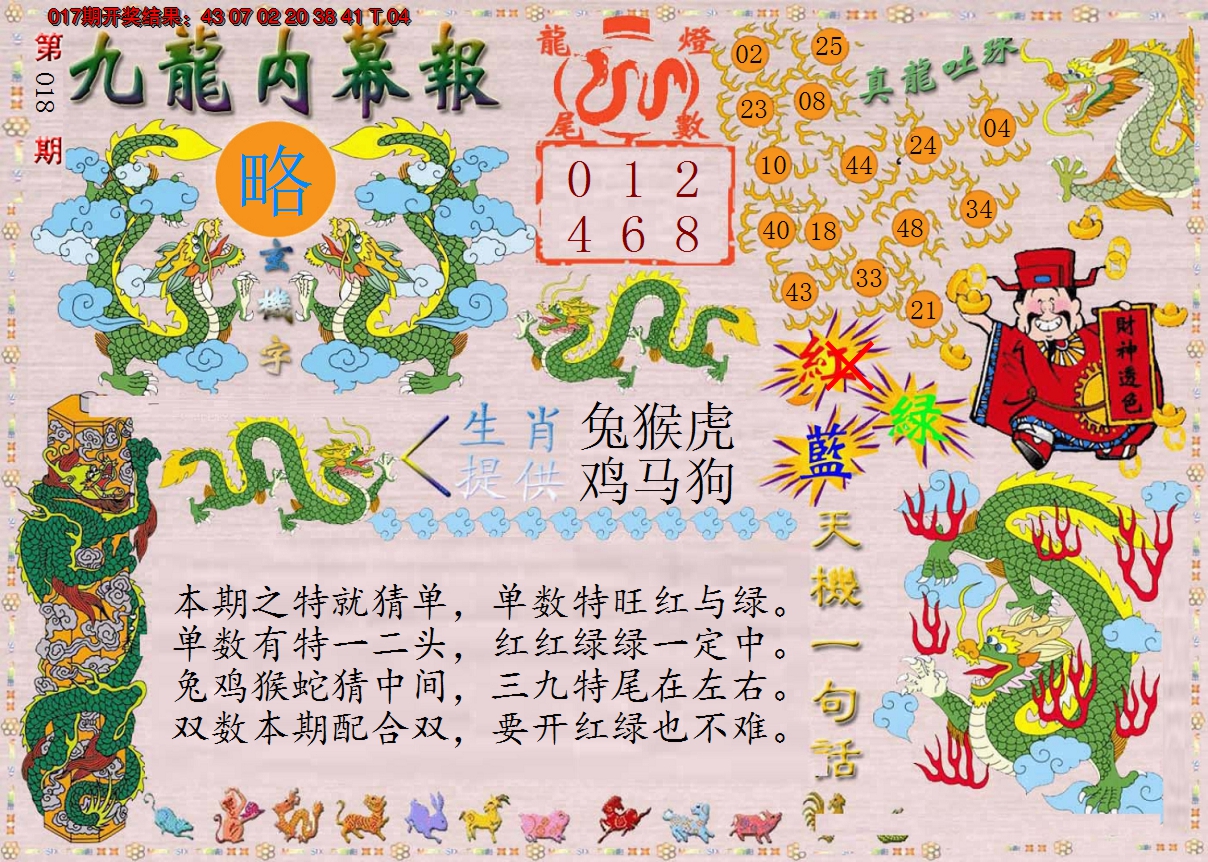 017期开奖结果：43 07 02 20 38 41 T 04
第018期
九龍内幕報
略
玄機字
龍燈
尾數
0 1 2
4 6 8
真龍吐珠
02 25
23 08
04
24
10 44
34
40 18 48
33
43
21
財神透色
紅
绿
藍
生肖
提供
兔猴虎
鸡马狗
天機一句话
本期之特就猜单，单数特旺红与绿。
单数有特一二头，红红绿绿一定中。
兔鸡猴蛇猜中间，三九特尾在左右。
双数本期配合双，要开红绿也不难。